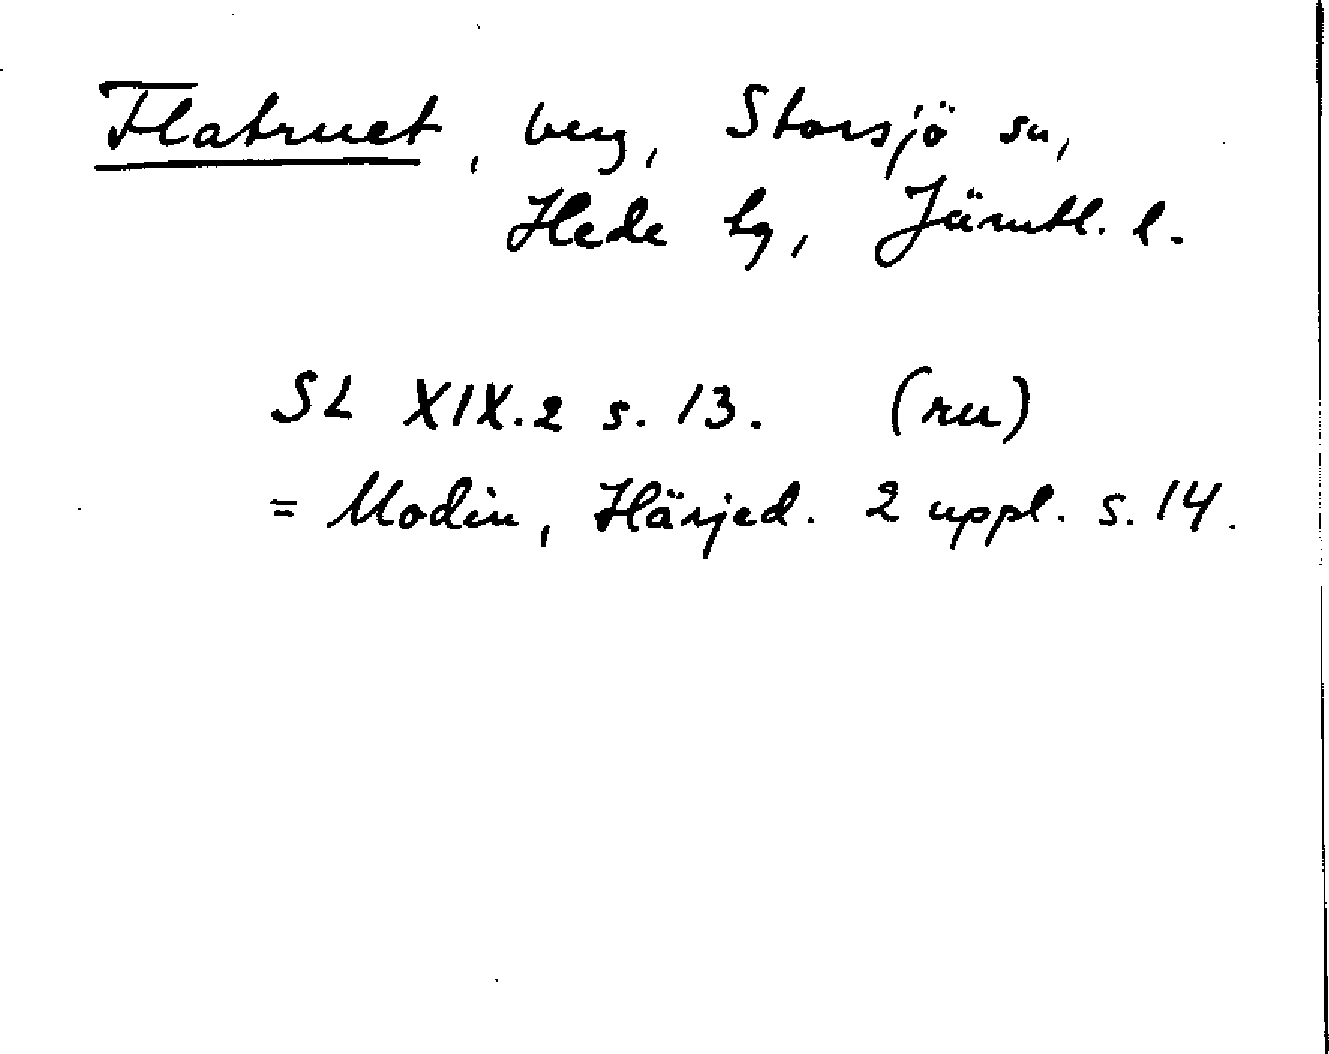 Flatruet, berg, Storsjö sn,
Hede tg, Jämtl. l.
SL XIX.2 s. 13. (ru)
= Modin, Härjed. 2 uppl. s. 14.